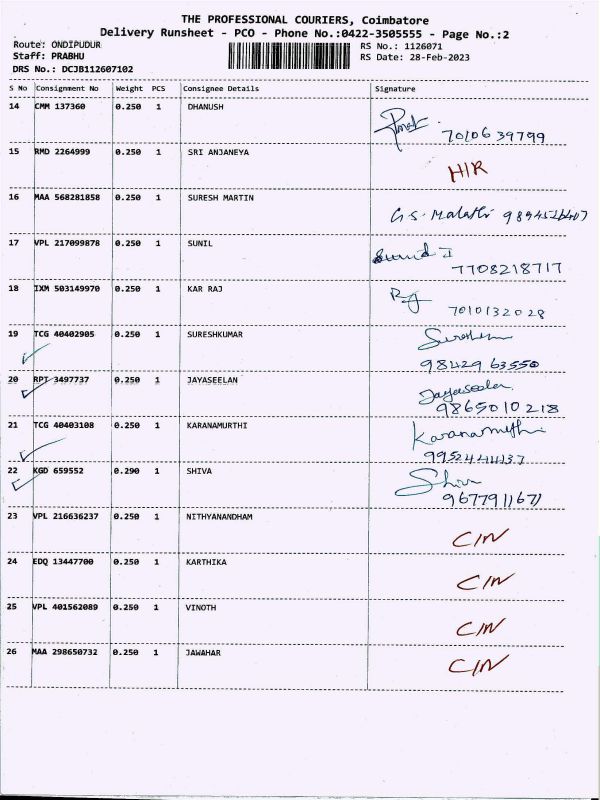 THE PROFESSIONAL COURIERS, Coimbatore
Delivery Runsheet - PCO - Phone No.:0422-3505555 - Page No.:2
Route: ONDIPUDUR RS No.: 1126071
Staff: PRABHU RS Date: 28-Feb-2023
DRS No.: DCJB112607102
S No Consignment No Weight PCS Consignee Details Signature
14 CMM 137360 0.250 1 DHANUSH
7010639799
15 RMD 2264999 0.250 1 SRI ANJANEYA H/R
16 MAA 568281858 0.250 1 SURESH MARTIN G.S. Malathi
17 VPL 217099878 0.250 1 SUNIL
7708218717
18 IXM 503149970 0.250 1 KAR RAJ RJ
7010132028
19 TCG 40402905 0.250 1 SURESHKUMAR
9842963550
20 RPT 3497737 0.250 1 JAYASEELAN Jayaseelan
9865010218
21 TCG 40403108 0.250 1 KARANAMURTHI Karanamurthi
9952444137
22 KGD 659552 0.290 1 SHIVA Shiva
9677911671
23 VPL 216636237 0.250 1 NITHYANANDHAM C/N
24 EDQ 13447700 0.250 1 KARTHIKA C/N
25 VPL 401562089 0.250 1 VINOTH C/N
26 MAA 298650732 0.250 1 JAWAHAR C/N